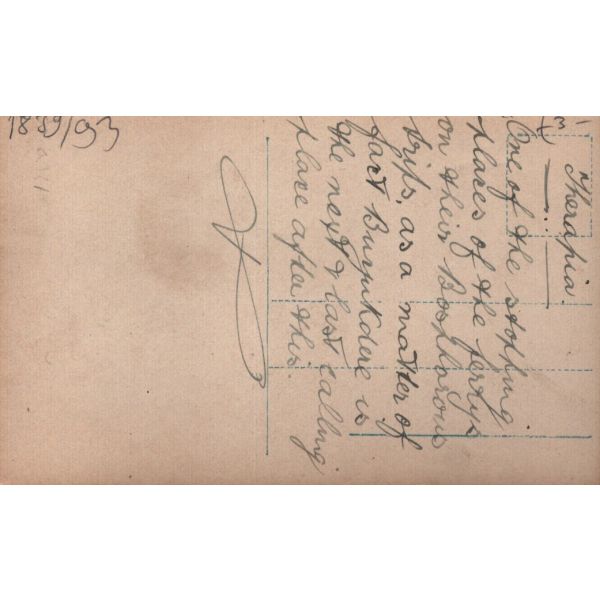 1889/93
Therapia.
One of the stopping
places of the ferrys
on their Bosphorous
trips, as a matter of
fact Buyukdere is
the next & last calling
place after this.